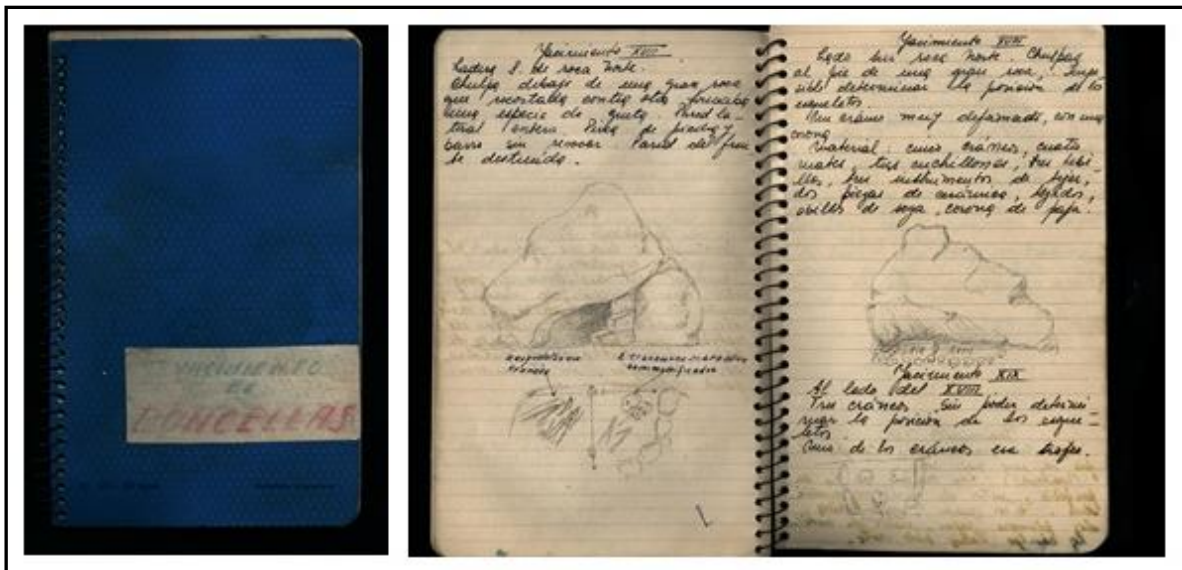 YACIMIENTO
DE
DONCELLAS
Yacimiento XVII
Ladera S. de roca Norte.
Chulpa debajo de una gran roca
que recostaba contra otra formaba
una especie de gruta. Pared la-
teral entera. Pirca de piedra y
barro sin revocar. Pared del fren
te destruida.
Yacimiento XVIII
Lado Sur roca Norte. Chulpas
al pie de una gran roca, impo-
sible determinar la posición de los
esqueletos.
Un cráneo muy deformado, con una
corona
Material: cinco cráneos, cuatro
mates, tres cuchillones, tres
tres instrumentos de tejer,
dos piezas de cerámica, tejidos,
ovillos de soga, corona de paja.
Yacimiento XIX
Al lado del XVIII
Tres cráneos sin poder determi-
nar la posición de los esque-
letos
Uno de los cráneos era